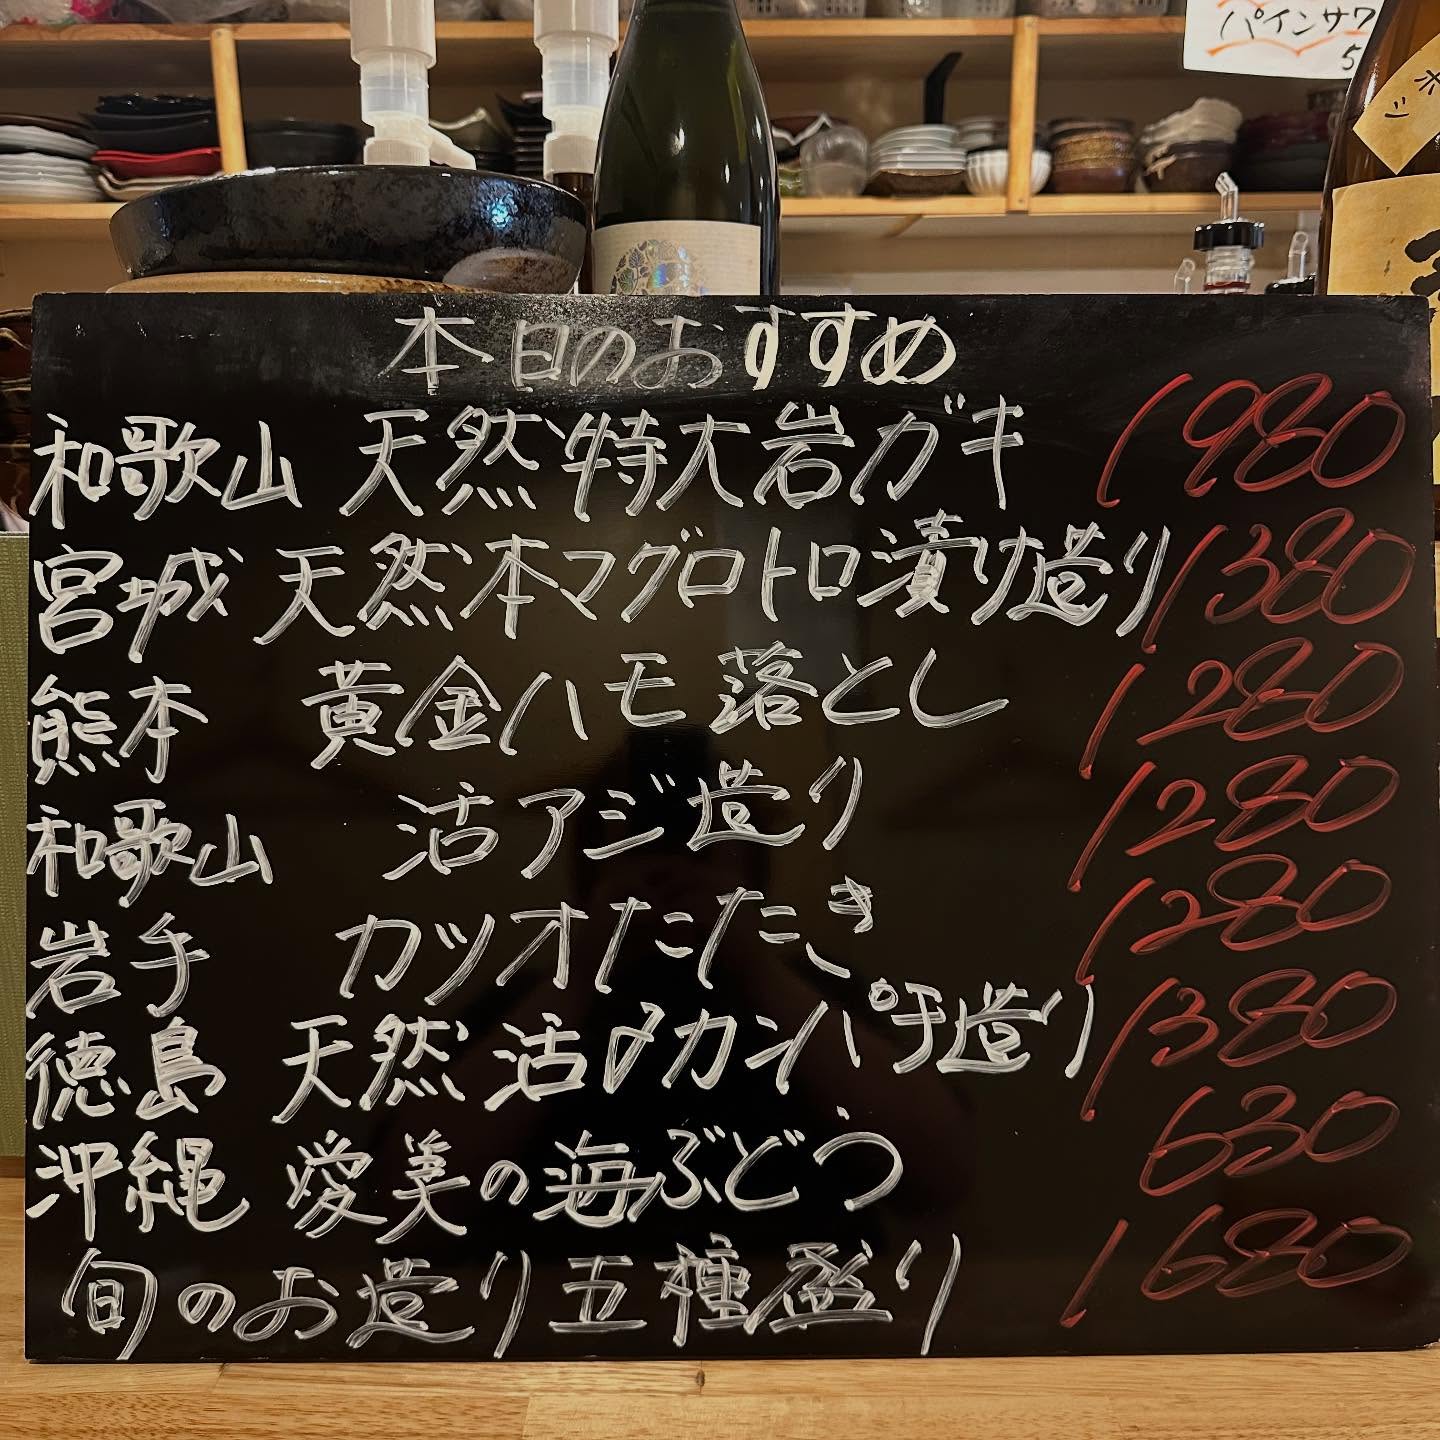 パインサワ
5
本日のおすすめ
和歌山 天然特大岩ガキ 1980
宮城 天然本マグロトロ漬け造り 1380
熊本 黄金ハモ落とし 1280
和歌山 活アジ造り 1280
岩手 カツオたたき 1280
徳島 天然活〆カンパチ造り 1380
沖縄 愛美の海ぶどう 630
旬のお造り五種盛り 1680